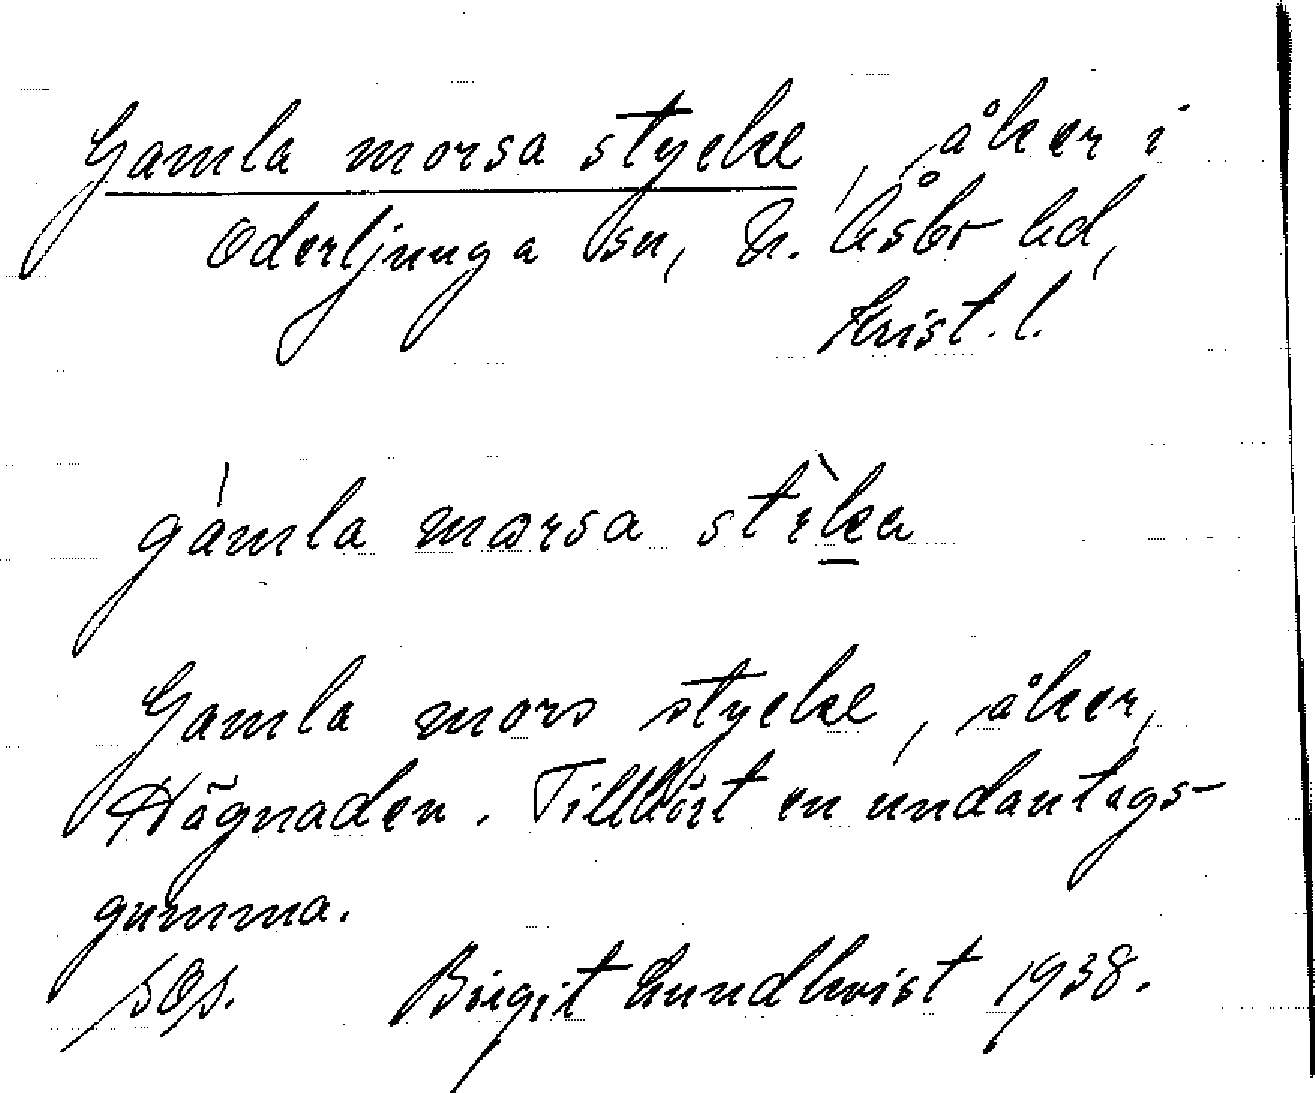 Gamla morsa stycke, åker i
Oderljunga sn, N. Åsbo hd,
Krist. l.
gámla marsa stìka
Gamla mors stycke, åker,
Hägnaden. Tillhört en undantags-
gumma.
Birgit Lundkvist 1938.